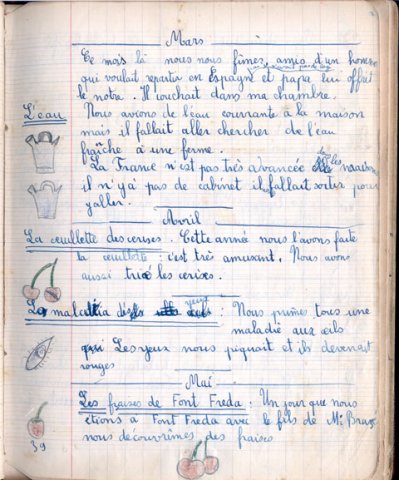 Mars
Ce mois là nous nous fîmes amis d'un homme
qui voulait repartir en Espagne et papa lui offrit
le notre. Il couchait dans ma chambre.
L'eau
Nous avions de l'eau courante à la maison
mais il fallait aller chercher de l'eau
fraîche à une ferme.
La France n'est pas très avancée
il n'y a pas de cabinet il fallait sortir pour
y aller.
Avril
La ceuillette des cerises. Cette année nous l'avons faite
la ceuillette : c'est très amusant. Nous avons
aussi trié les cerises.
yeux
La maladie des : Nous primes tous une
maladie aux œils
Les yeux nous piquait et ils devenait
rouges
Mai
Les fraises de Font Freda : Un jour que nous
étions à Font Freda avec le fils de Mr
nous découvrîmes des fraises
39